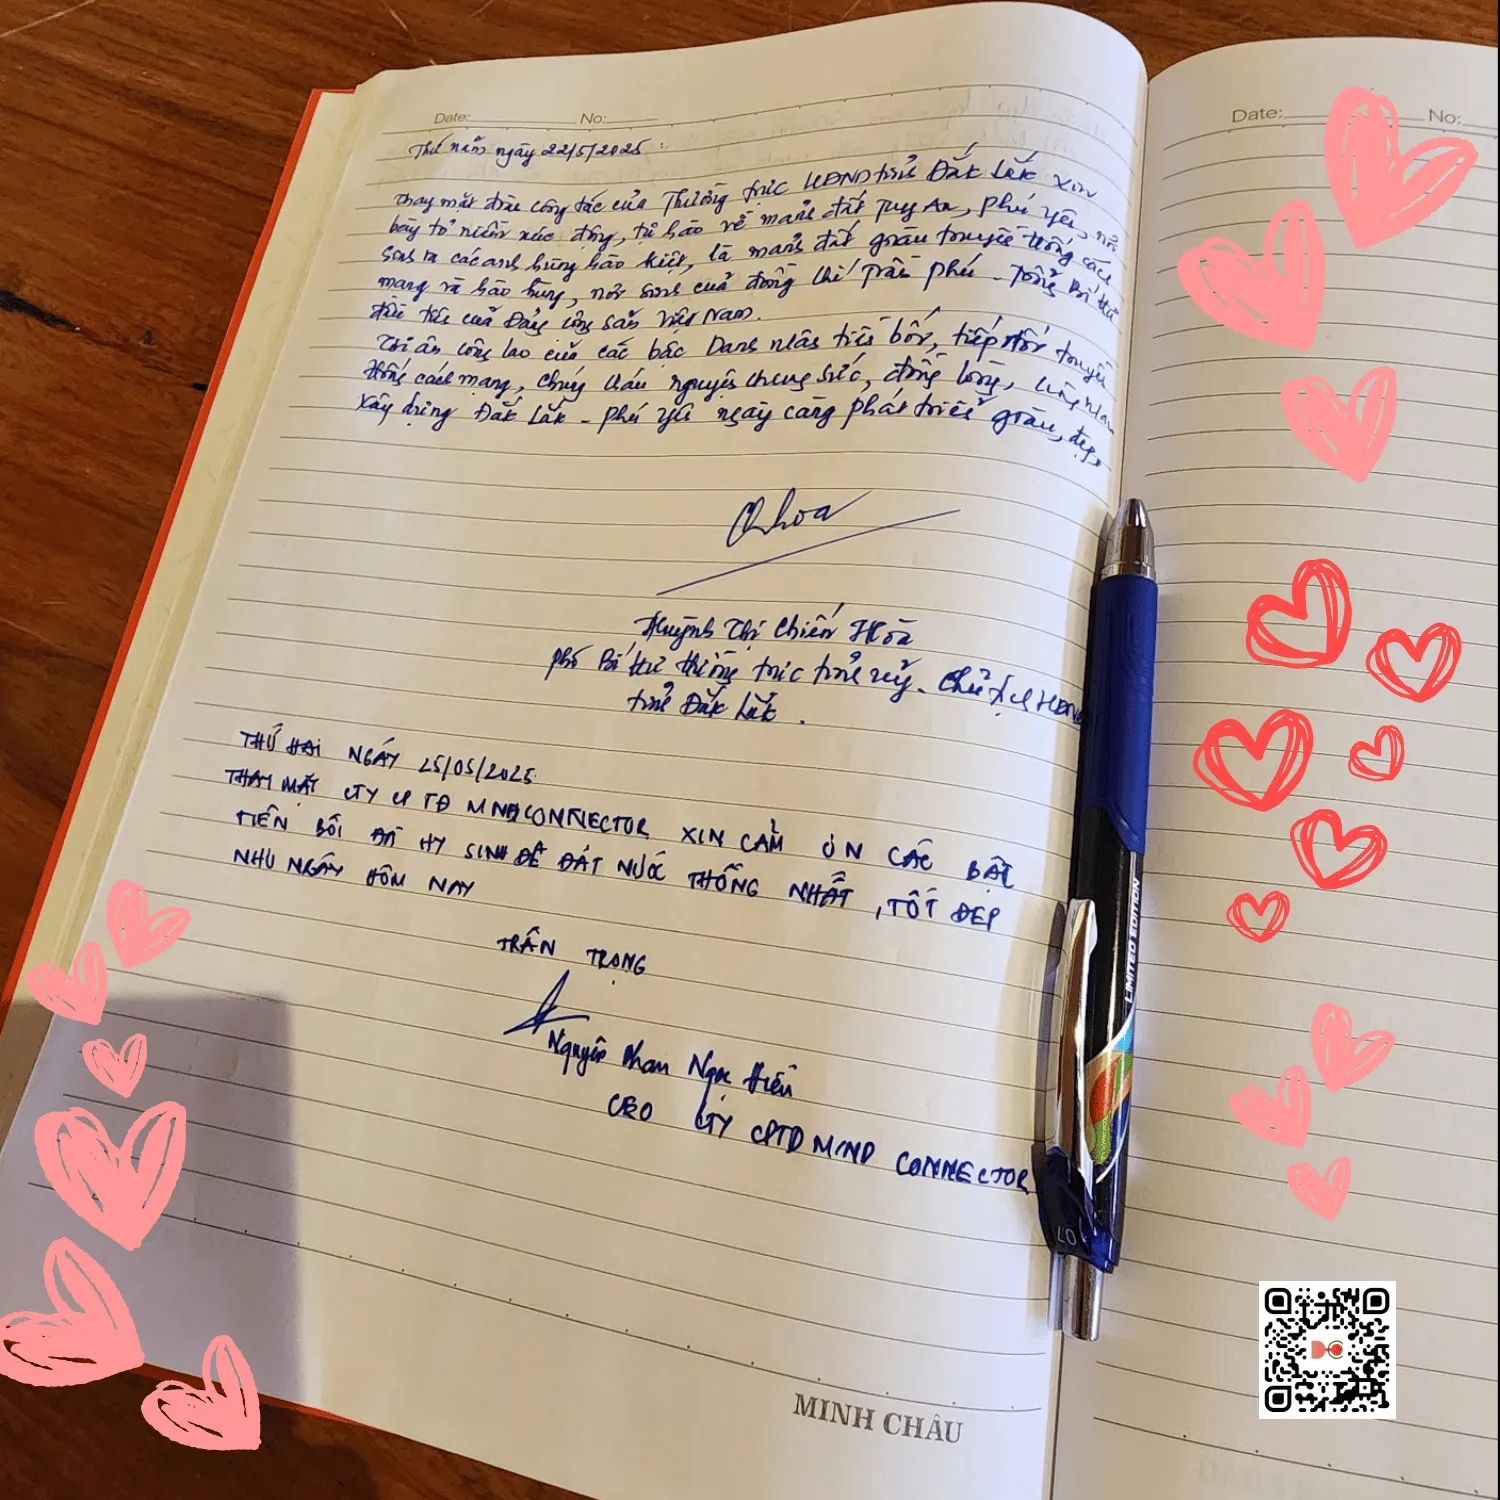 Date: No:
Thứ năm ngày 22/5/2025 :
Thay mặt đoàn công tác của Thường trực HĐND tỉnh Đắk Lắk xin
bày tỏ niềm xúc động, tự hào về mảnh đất Tuy An, Phú Yên, nơi
sinh ra các anh hùng hào kiệt, là mảnh đất giàu truyền thống cách
mạng và hào hùng, nơi sinh của đồng chí Trần Phú - Tổng Bí thư
đầu tiên của Đảng Cộng sản Việt Nam.
Tri ân công lao của các bậc Danh nhân tiền bối, tiếp nối truyền
thống cách mạng, chúng cháu nguyện chung sức, đồng lòng, cùng nhau
xây dựng Đắk Lắk - Phú Yên ngày càng phát triển giàu, đẹp.
Huỳnh Thị Chiến Hòa
Phó Bí thư thường trực tỉnh ủy - Chủ tịch HĐND
tỉnh Đắk Lắk.
THỨ HAI NGÀY 25/05/2025
THAY MẶT CTY CP TĐ MIND CONNECTOR XIN CẢM ƠN CÁC BẬC
TIỀN BỐI ĐÃ HY SINH ĐỂ ĐẤT NƯỚC THỐNG NHẤT, TỐT ĐẸP
NHƯ NGÀY HÔM NAY
TRÂN TRỌNG
Nguyễn Phạm Ngọc Hiền
CEO CTY CPTD MIND CONNECTOR
MINH CHÂU
Date: No:
LIMITED EDITION
0.7